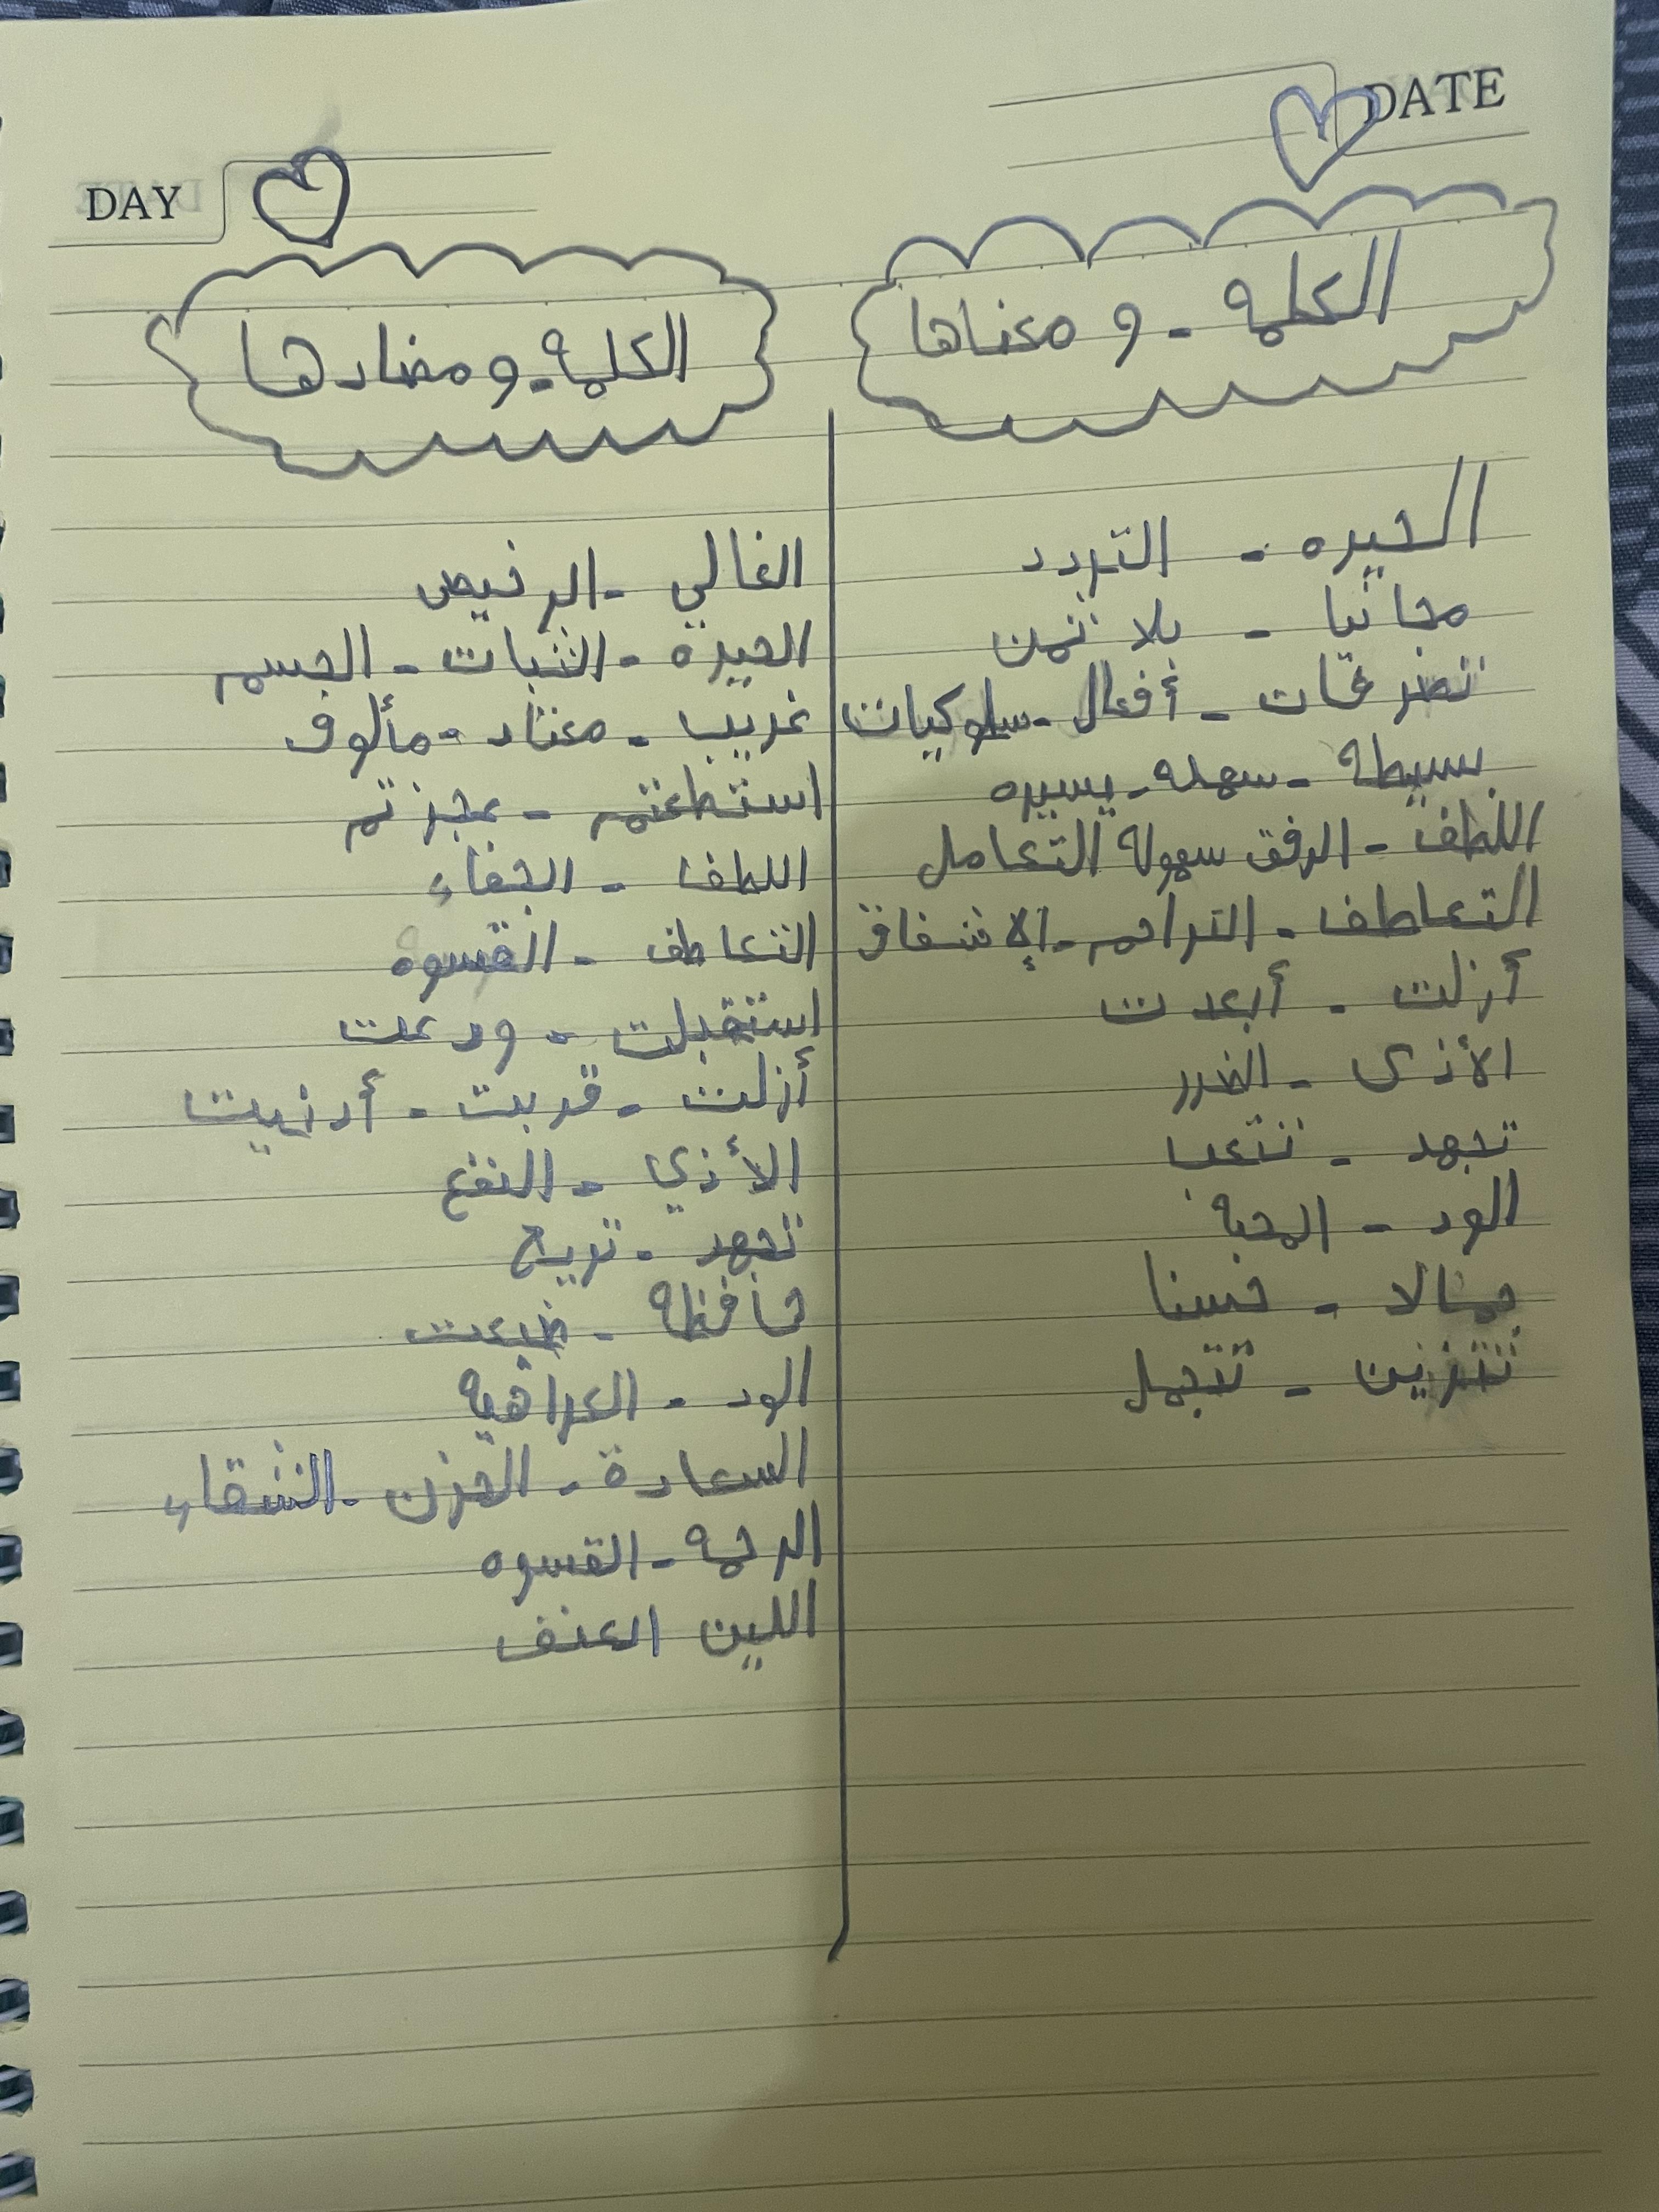 DATE
DAY
الكلمه - و معناها
الحيره - التردد
مجانيا - بلا ثمن
تصرفات - أفعال - سلوكيات
بسيطه - سهله - يسيره
اللطف - الرفق سهولة التعامل
التعاطف - التراحم - الإشفاق
أزلت - أبعدت
الأذى - الضرر
تجهد - تتعب
الود - المحبه
جمالا - حسنا
تتزين - تتجمل
الكلمه - و مضادها
الغالي - الرخيص
الحيرة - الثبات - الجسم
غريب - معتاد - مألوف
استطعتم - عجزتم
اللطف - الجفاء
التعاطف - القسوه
استقبلت - ودعت
أزلت - قربت - أدنيت
الأذي - النفع
تجهد - تريح
حافظه - ضيعت
الود - الكراهيه
السعادة - الحزن - الشقاء
الرحمه - القسوه
اللين العنف